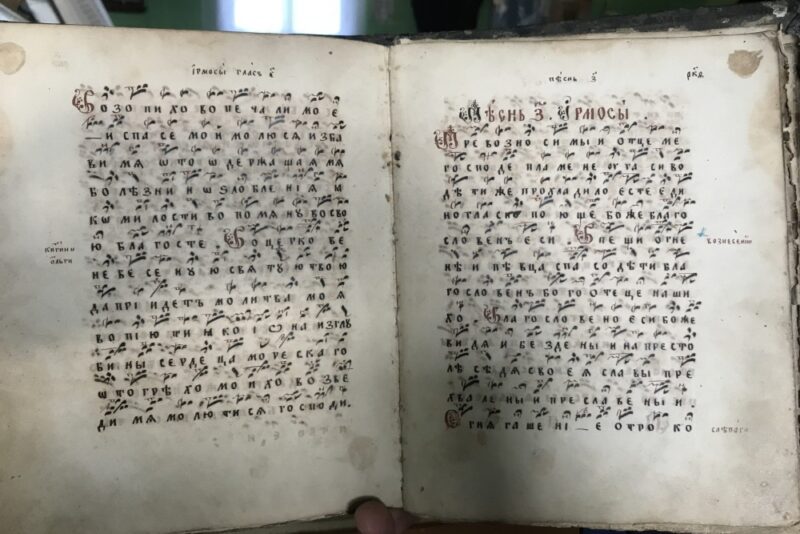 ІРМОСЫ ГЛАСЪ Е҃
ВОЗОПИХО ВО ПЕЧАЛИ МОЕ
И СПАСЕ МОИ МОЛЮСЯ ИЗБА
ВИ МЯ ѾТО ѠДЕРЖАЩАЯ МЯ
БОЛѢЗНИ И ѠЗЛОБЛЕНІЯ Я
КѠ МИЛОСТИВО ПОМЯНУ ВО СВО
Ю БЛАГОСТЕ . ВО ЦЕРКОВЕ
НЕБЕСЕНУЮ СВЯТУЮ ТВОЮ
ДА ПРІИДЕТЪ МОЛИТВА МОЯ
ВОПІЮ ТИ ЯКО ІѠНА ИЗ ГЛУ
БИНЫ СЕРДЕЦА МОРЕСКАГО
ѾТО ГРѢХО МОИХО ВОЗВЕ
ДИ МЯ МОЛЮ ТИ СЯ ГОСПОДИ .
ОЛЬГИ
ПѢСНЬ З҃
РК҃Д
ПѢСНЬ З҃. ІРМОСЫ .
ПРЕВОЗНОСИМЫИ ОТЦЕМЕ
ГОСПОДЕ ПЛАМЕНЕ ОУГАСИВО
ДѢТИ ЖЕ ПРОХЛАДИЛО ЕСТЕ ЕДИ
НОГЛАСНО ПОЮЩЕ БОЖЕ БЛАГО
СЛОВЕНЪ ЕСИ . СПЕШИ ОГНЕ
НѢ И ПѢВЦА СПАСО ДѢТИ БЛА
ГОСЛОВЕНЪ БОГО ОТЕЦЕ НАШИ
ХО . БЛАГОСЛОВЕНО ЕСИ БОЖЕ
ВИДЯИ БЕЗДЕНЫ И НА ПРЕСТО
ЛѢ СѢДЯ СВОЕЯ СЛАВЫ ПРЕ
ХВАЛЕНЫИ ПРЕСЛАВЕНЫИ .
ОГНЯ ГАШЕНІЕ ОТРОКО
ВОЗНЕСЕНИЮ
СЛѢПАГО